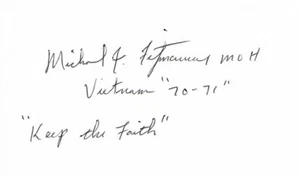 Michael J. Fitzmaurice MOH
Vietnam "70-71"
"Keep the Faith"